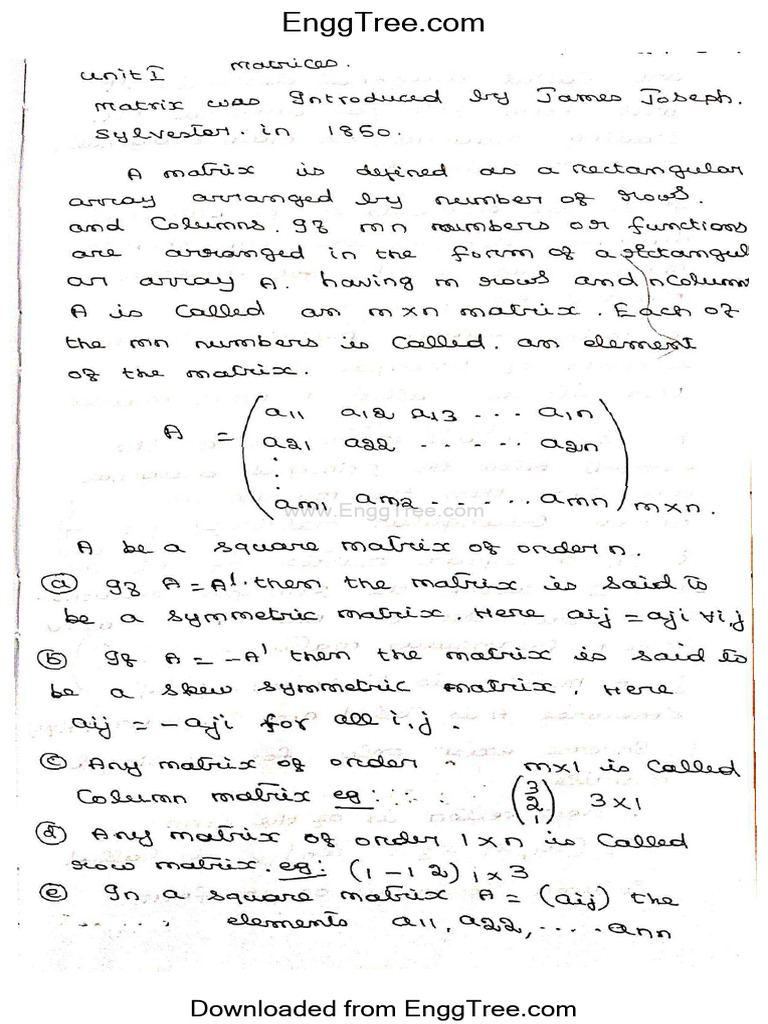 EnggTree.com
Unit I Matrices.
Matrix was Introduced by James Joseph.
Sylvester. in 1860.
A matrix is defined as a rectangular
array arranged by number of rows.
and Columns. If mn numbers or functions
are arranged in the form of a rectangul
ar array A. having m rows and n Column
A is Called an m×n matrix. Each of
the mn numbers is Called. an element
of the matrix.
a11 a12 a13 ... a1n
A = a21 a22 ..... a2n
⋮
am1 am2 ...... amn m×n.
www.EnggTree.com
A be a square matrix of order n.
(a) If A = A'. then the matrix is said to
be a symmetric matrix. Here aij = aji ∀i,j
(b) If A = -A' then the matrix is said to
be a skew symmetric matrix. Here
aij = -aji for all i,j.
(c) Any matrix of order m×1 is Called
Column matrix eg: (3 2 1) 3×1
(d) Any matrix of order 1×n is Called
row matrix. eg: (1 -1 2) 1×3
(e) In a square matrix A = (aij) the
elements a11, a22, .... ann
Downloaded from EnggTree.com